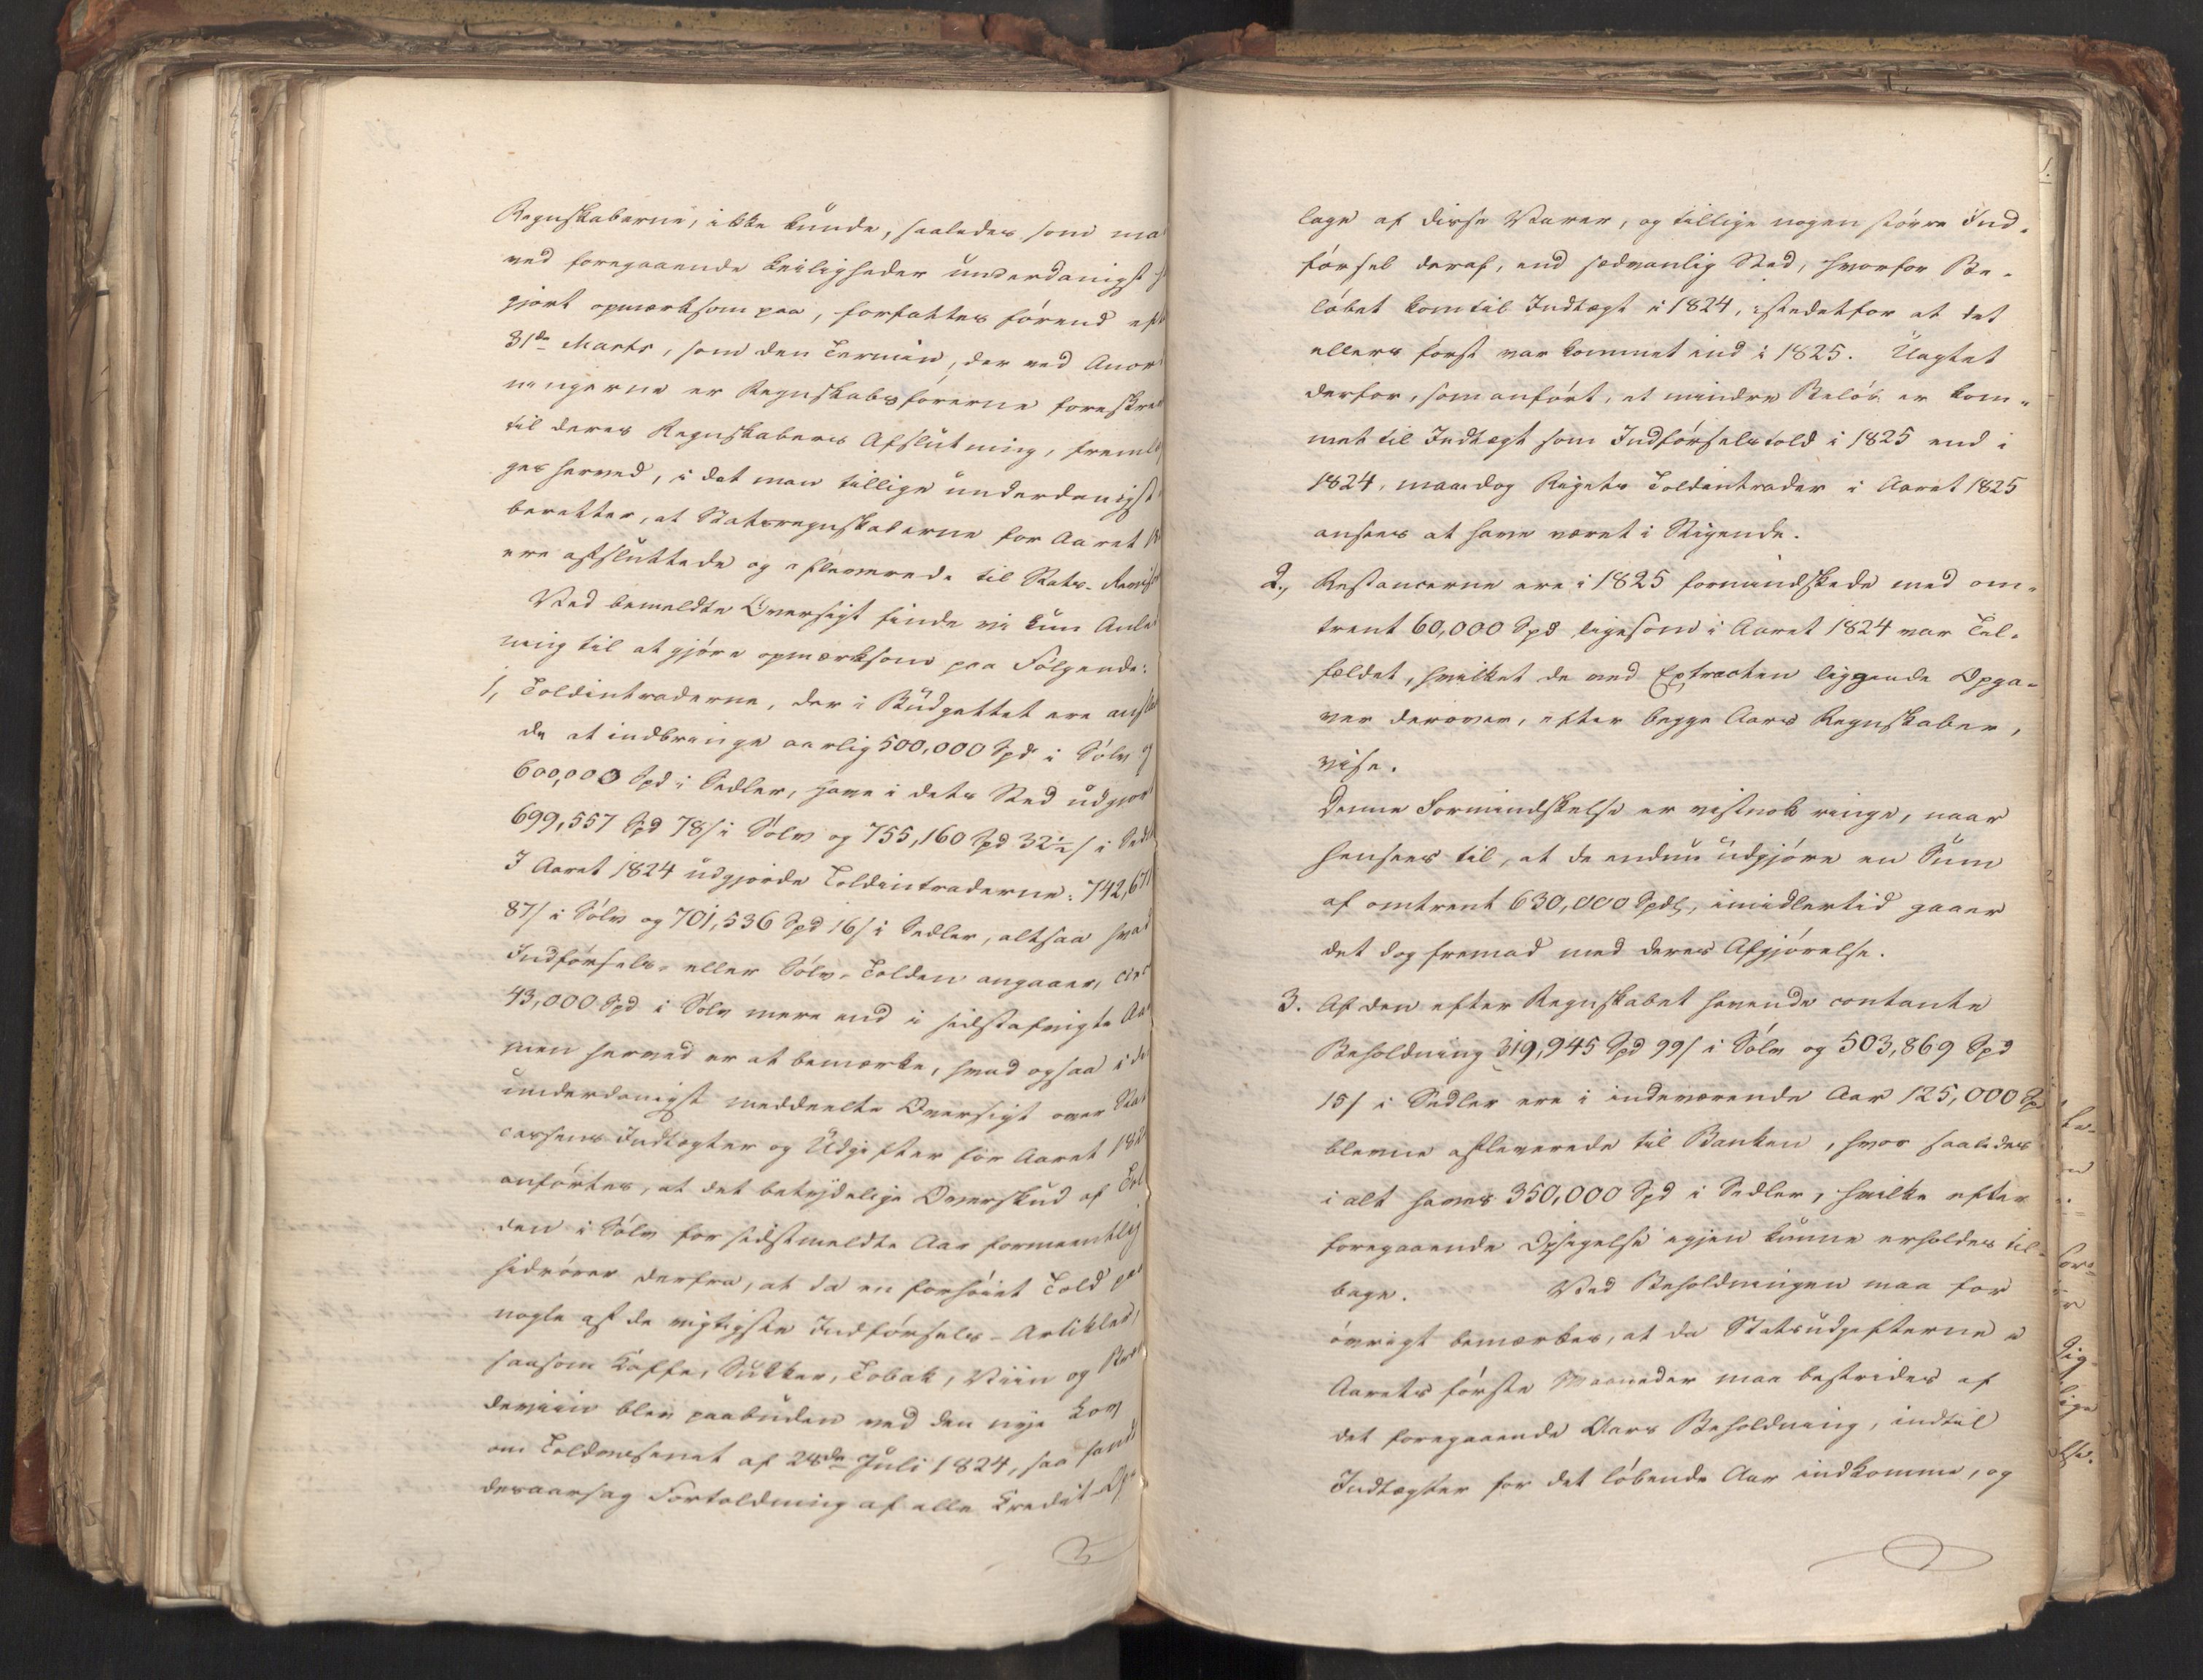 Regnskaberne, ikke kunde, saaledes som ma
ved foregaaende Leiligheder underdanigst
gjort opmærksom paa, forfattes førend eft
31de Marts, som den Termin, der ved Anor
ningerne er Regnskabsførerne foreskre
til deres Regnskabers Afslutning, fremlæg
ges herved, i det man tillige underdanigst
beretter, at Statsregnskaberne for Aaret 18
ere afsluttede og afleverede til Stats-Revis
Ved bemeldte Oversigt finde vi kun Anled
ning til at gjøre opmærksom paa Følgende:
1, Toldintraderne, der i Büdgettet ere ansla
de at indbringe aarlig 500,000 Spd i Sølv og
600,000 Spd i Sedler, have i dets Sted udgjort
699,557 Spd 78/ i Sølv og 755,160 Spd 32½/ i Sedl
I Aaret 1824 udgjorde Toldintraderne: 742,671
87/ i Sølv og 701,536 Spd 16/ i Sedler, altsaa hvad
Indførsels- eller Sølv-Tolden angaaer, circ
43,000 Spd i Sølv mere end i sidstafvigte Aar
men herved er at bemærke, hvad ogsaa i de
underdanigst meddeelte Oversigt over Stat
cassens Indtægter og Udgifter for Aaret 182
anførtes, at det betydelige Overskud af Tol
den i Sølv for sidstmeldte Aar formeentlig
hidrører derfra, at da en forhøiet Told paa
nogle af de vigtigste Indførsels-Artikler,
saasom Kaffe, Sukker, Tobak, Viin og Bræn
deviin blev paabuden ved den nye Lov
om Toldvæsenet af 28de Juli 1824, saa fandt
desaarsag Fortoldning af alle Kredit-Op
lage af disse Varer, og tillige nogen større Ind-
førsel deraf, end sædvanlig Sted, hvorfor Be-
løbet kom til Indtægt i 1824, istedetfor at det
ellers først var kommet ind i 1825. Uagtet
derfor, som anført, et mindre Beløb er kom-
met til Indtægt som Indførselstold i 1825 end i
1824, maa dog Rigets Toldintrader i Aaret 1825
ansees at have været i Stigende.
2, Restancerne ere i 1825 formindskede med om-
trent 60,000 Spd ligesom i Aaret 1824 var Til-
fældet, hvilket de ved Extracten liggende Opga-
ver derover, efter begge Aars Regnskaber,
vise.
Denne Formindskelse er vistnok ringe, naar
hensees til, at de endnu udgjøre en Sum
af omtrent 630,000 Spd, imidlertid gaaer
det dog fremad med deres Afgjørelse.
3. Af den efter Regnskabet havende contante
Beholdning 319,945 Spd 99/ i Sølv og 503,869 Spd
15/ i Sedler ere i indeværende Aar 125,000 Sp
blevne afleverede til Banken, hvor saaledes
i alt haves 350,000 Spd i Sedler, hvilke efter
foregaaende Opsigelse igjen kunne erholdes til-
bage. Ved Beholdningen maa for
øvrigt bemærkes, at da Statsudgifterne i
Aarets første Maaneder maa bestrides af
det foregaaende Aars Beholdning, indtil
Indtægter for det løbende Aar indkomme, og